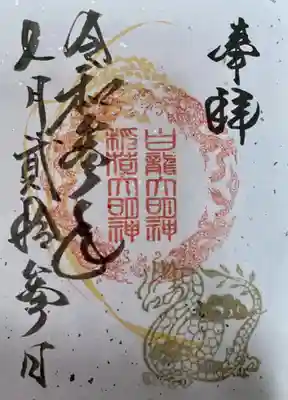 奉拝
白龍大明神
稲荷大明神
令和参年
五月貳拾参日